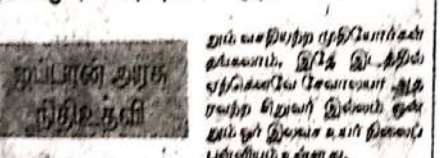 ஜப்பான் அரசு
நிதிஉதவி
தும் வசதியற்ற முதியோர்கள்
தங்கலாம். இதே இடத்தில்
ஏற்கெனவே சேவாலயா ஆத
ரவற்ற சிறுவர் இல்லம் ஒன்
தும் ஓர் இலவச உயர் நிலைப்
பள்ளியும் உள்ளது.